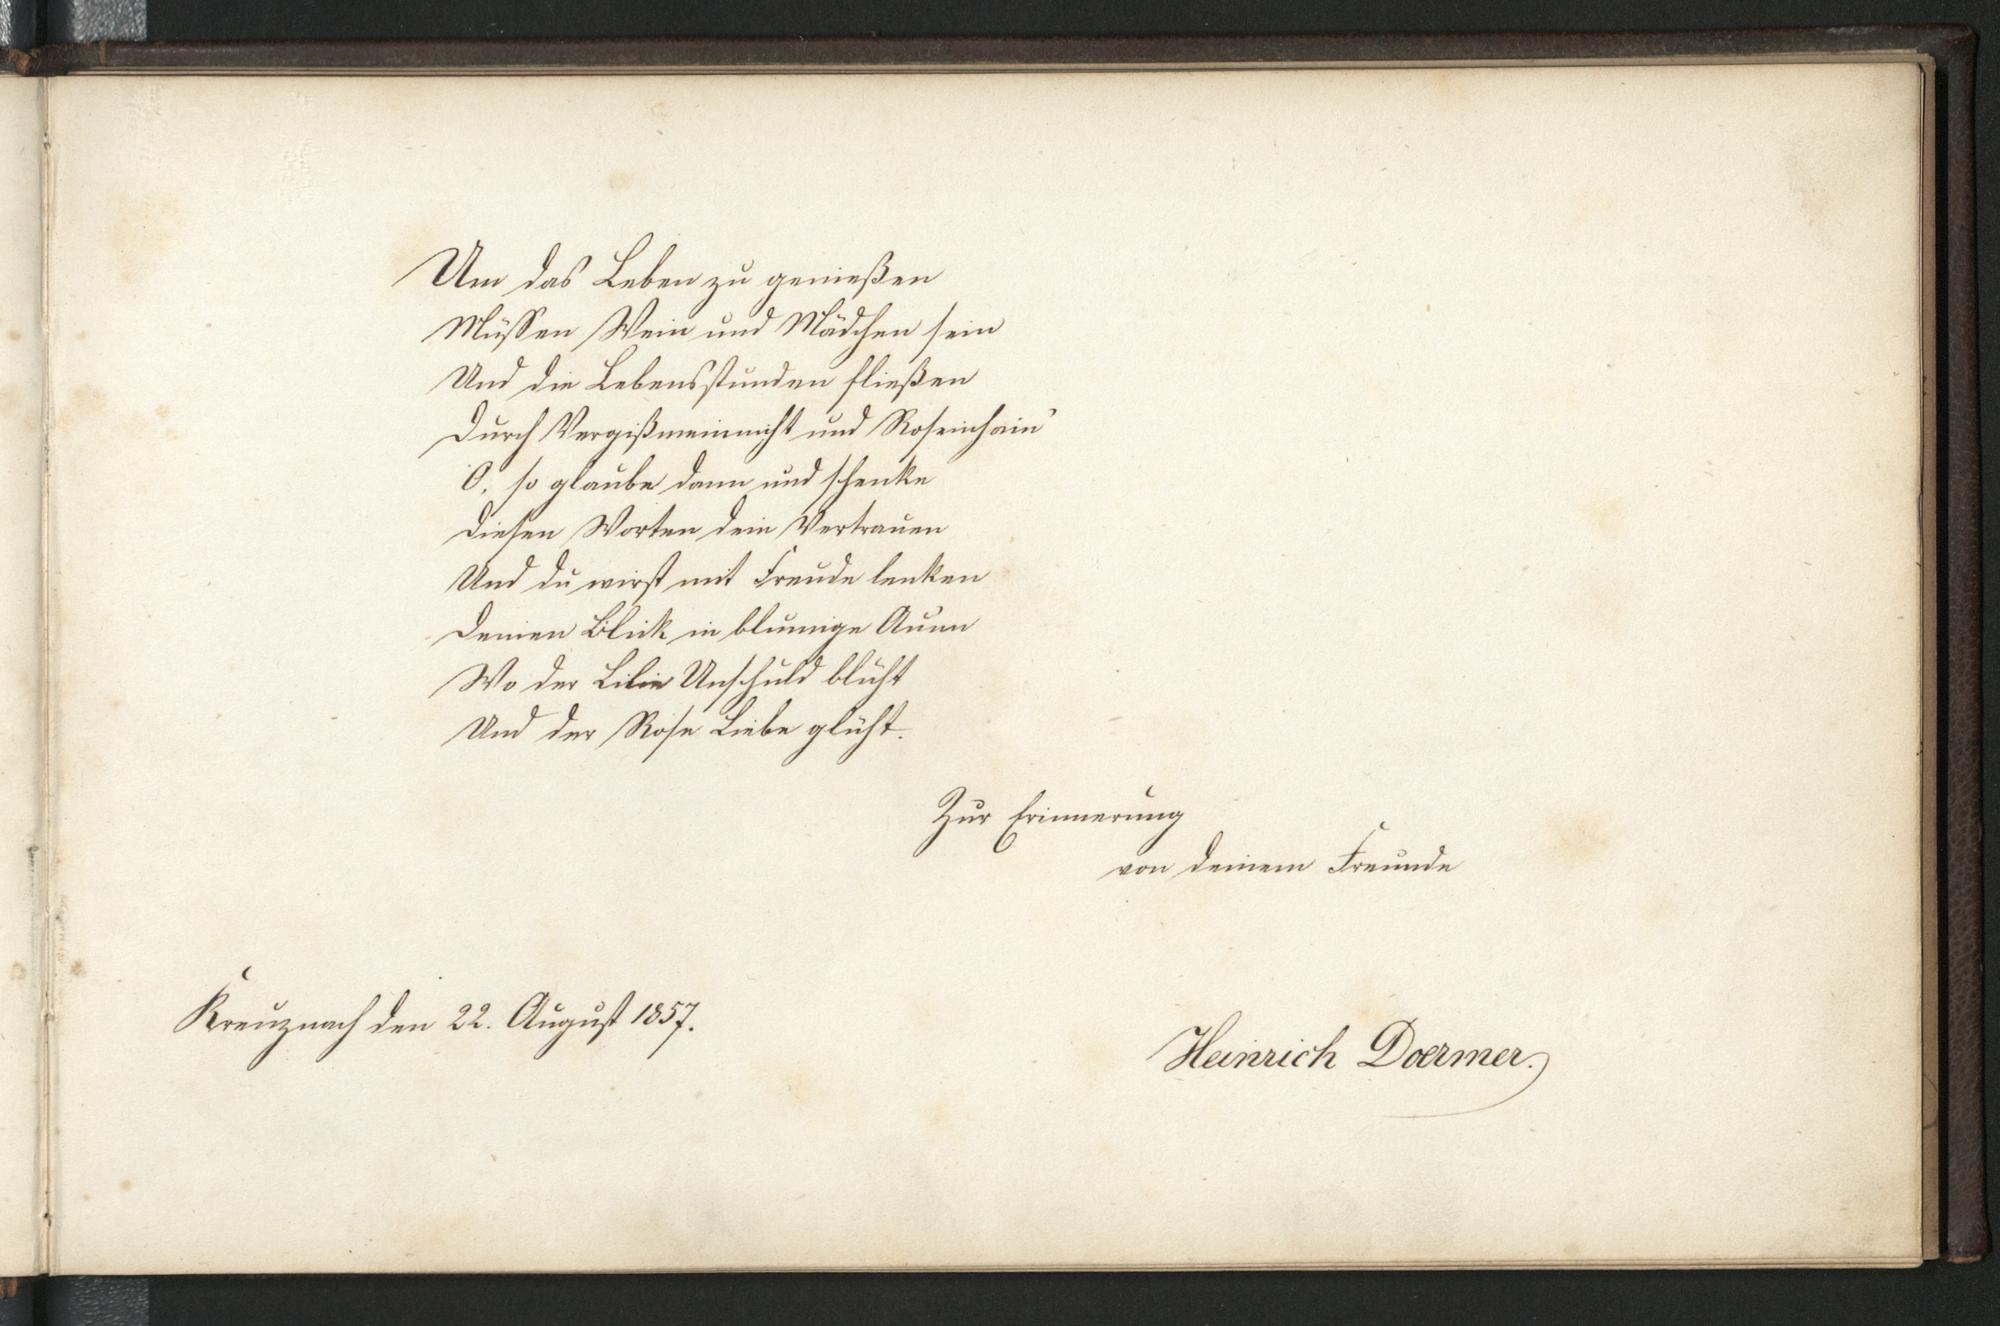 Um das Leben zu genießen
Müssen Wein und Mädchen sein
Und die Lebensstunden fließen
Durch Vergißmeinnicht und Rosenhain
O, so glaube dann und schenke
Diesen Worten dein Vertrauen
Und du wirst mit Freude lenken
Deinen Blick in blumige Auen
Wo der Lilie Unschuld blüht
Und der Rose Liebe glüht.
Zur Erinnerung
von deinem Freunde
Kreuznach den 22. August 1857.
Heinrich Doermer.